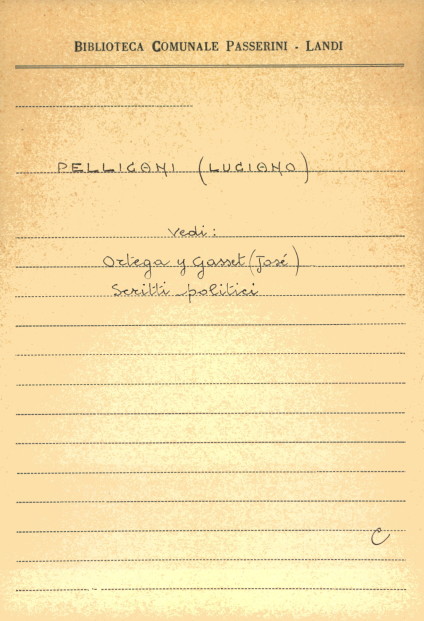 BIBLIOTECA COMUNALE PASSERINI - LANDI
PELLICANI (LUCIANO)
Vedi:
Ortega y Gasset (José)
Scritti politici
C